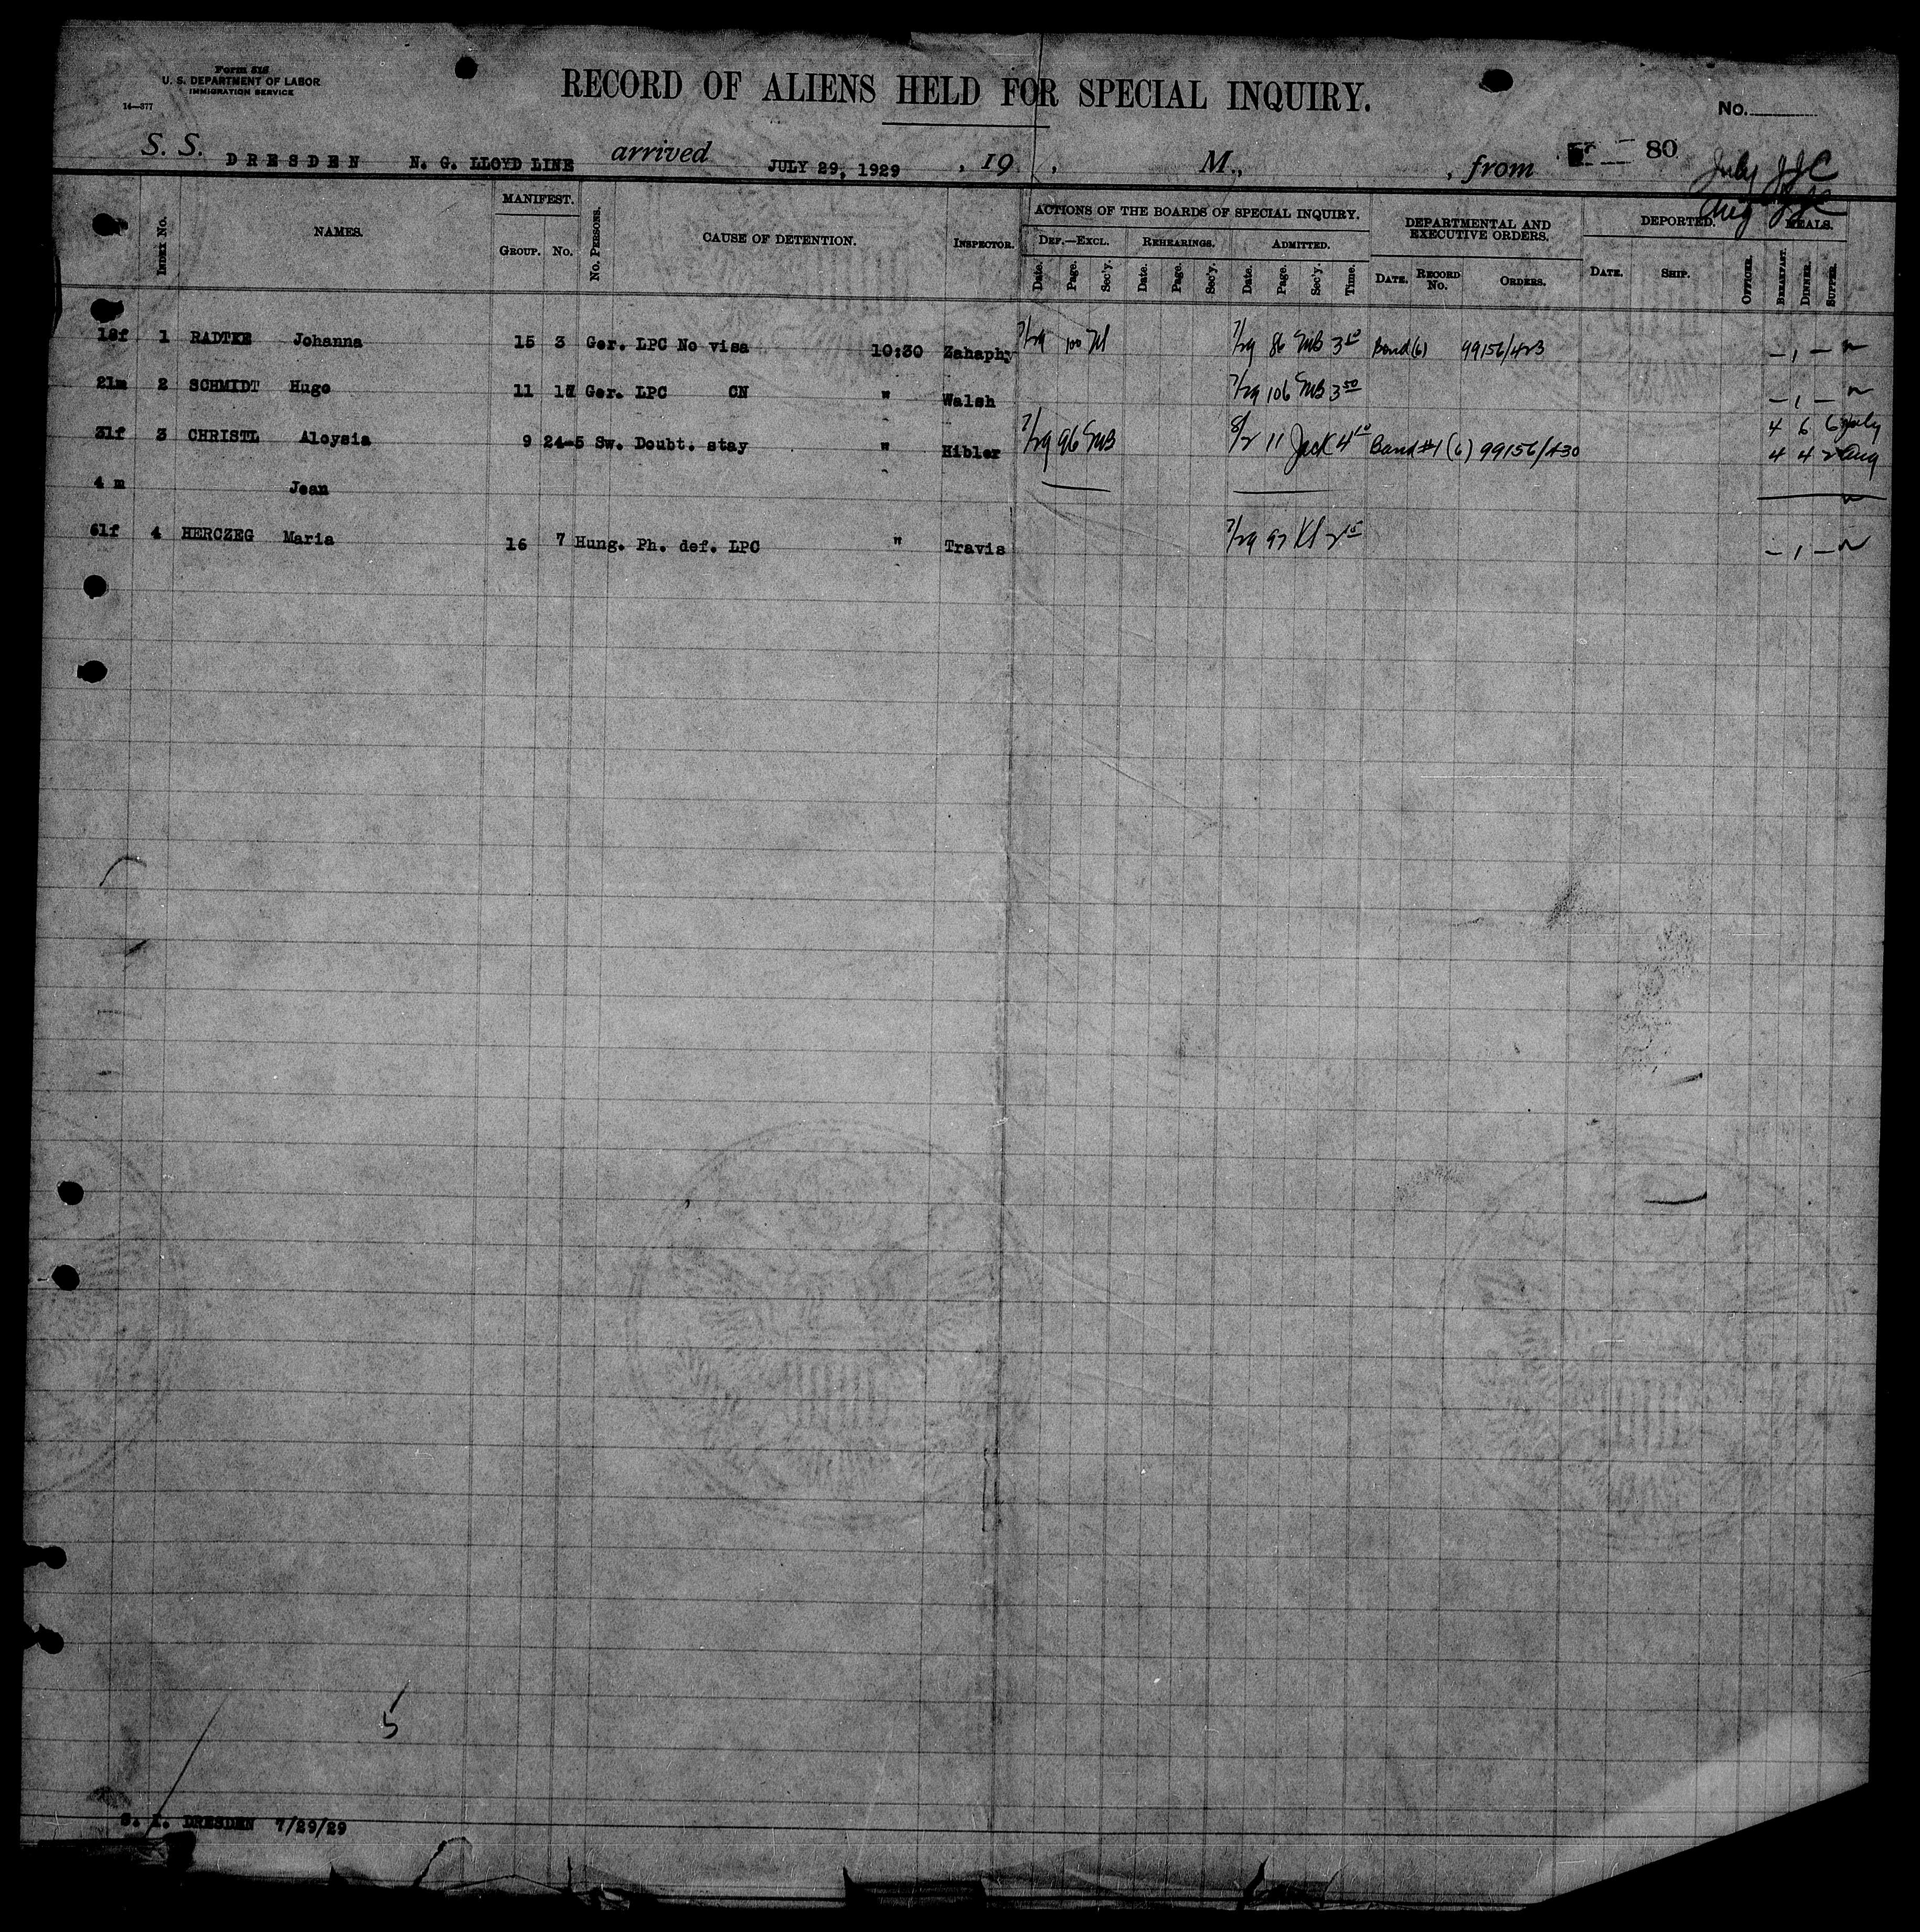 Form 518
U. S. DEPARTMENT OF LABOR
IMMIGRATION SERVICE
14—377
RECORD OF ALIENS HELD FOR SPECIAL INQUIRY.
No.
S. S. DRESDEN N. G. LLOYD LINE arrived JULY 29, 1929, 19 , M., , from 80
July JJC
Aug JJC
INDEX No. NAMES. MANIFEST. GROUP. No. No. PERSONS. CAUSE OF DETENTION. INSPECTOR. ACTIONS OF THE BOARDS OF SPECIAL INQUIRY. DEF.—EXCL. Date. Page. Sec'y. REHEARINGS. Date. Page. Sec'y. ADMITTED. Date. Page. Sec'y. Time. DEPARTMENTAL AND EXECUTIVE ORDERS. DATE. RECORD No. ORDERS. DEPORTED. DATE. SHIP. OFFICER. MEALS. BREAKFAST. DINNER. SUPPER.
18f 1 RADTKE Johanna 15 3 Ger. LPC No visa 10:30 Zahaphy 7/29 100 7/29 86 3 10 Bond (6) 99156/423 – 1 –
21m 2 SCHMIDT Hugo 11 Ger. LPC CN " Walsh 7/29 106 3 50 – 1 –
31f 3 CHRISTL Aloysia 9 24-5 Sw. Doubt. stay " Hibler 7/29 96 8/2 11 Jack 4 10 Bond #1 (6) 99156/430 4 6 6 July
4 4 2 Aug
4 m Jean
61f 4 HERCZEG Maria 16 7 Hung. Ph. def. LPC " Travis 7/29 97 2 15 – 1 –
5
S. I. DRESDEN 7/29/29